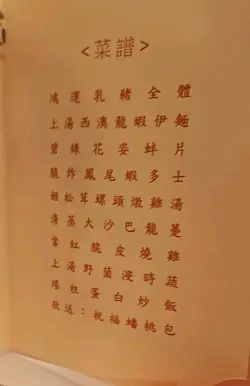 <菜譜>
鴻運乳豬全體
上湯西澳龍蝦伊麵
碧綠花姿蚌片
脆炸鳳尾蝦多士
姬松茸螺頭燉雞湯
清蒸大沙巴龍躉
當紅脆皮燒雞
上湯野菌浸時蔬
瑤柱蛋白炒飯
敬送：祝福蟠桃包